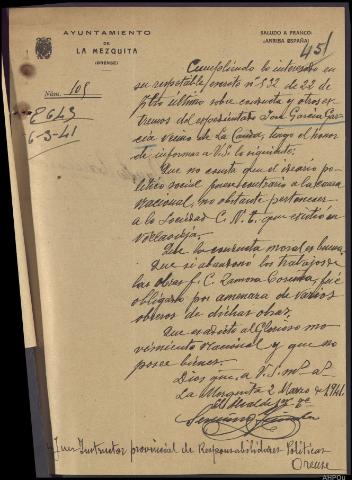 AYUNTAMIENTO
DE
LA MEZQUITA
(ORENSE)
SALUDO A FRANCO:
¡ARRIBA ESPAÑA!
45
Núm. 105
E 643
6-3-41
Cumpliendo lo interesado en
su respetable escrito nº 532 de 22 de
pbdo último sobre conducta y otros ex-
tremos del expedientado José García Gar-
cía vecino de La Canda, tengo el honor
de informar a V.S. lo siguiente:
Que no consta que el ideario po-
lítico social fuera contrario a la causa
Nacional, no obstante pertenecer
a la Sociedad C.N.t. que existió en
Villavieja.
Que la conducta moral es buena.
Que si abandonó los trabajos de
las obras f. C. Zamora Coruña, fué
obligado por amenaza de varios
obreros de dichas obras.
Que es adicto al Glorioso mo-
vimiento Nacional y que no
posee bienes.
Dios gue. a V.S. ms. as.
La Mezquita 2 Marzo de 1941.
El Alcalde
Juez Instructor provincial de Responsabilidades Políticas
Orense
AHPOu